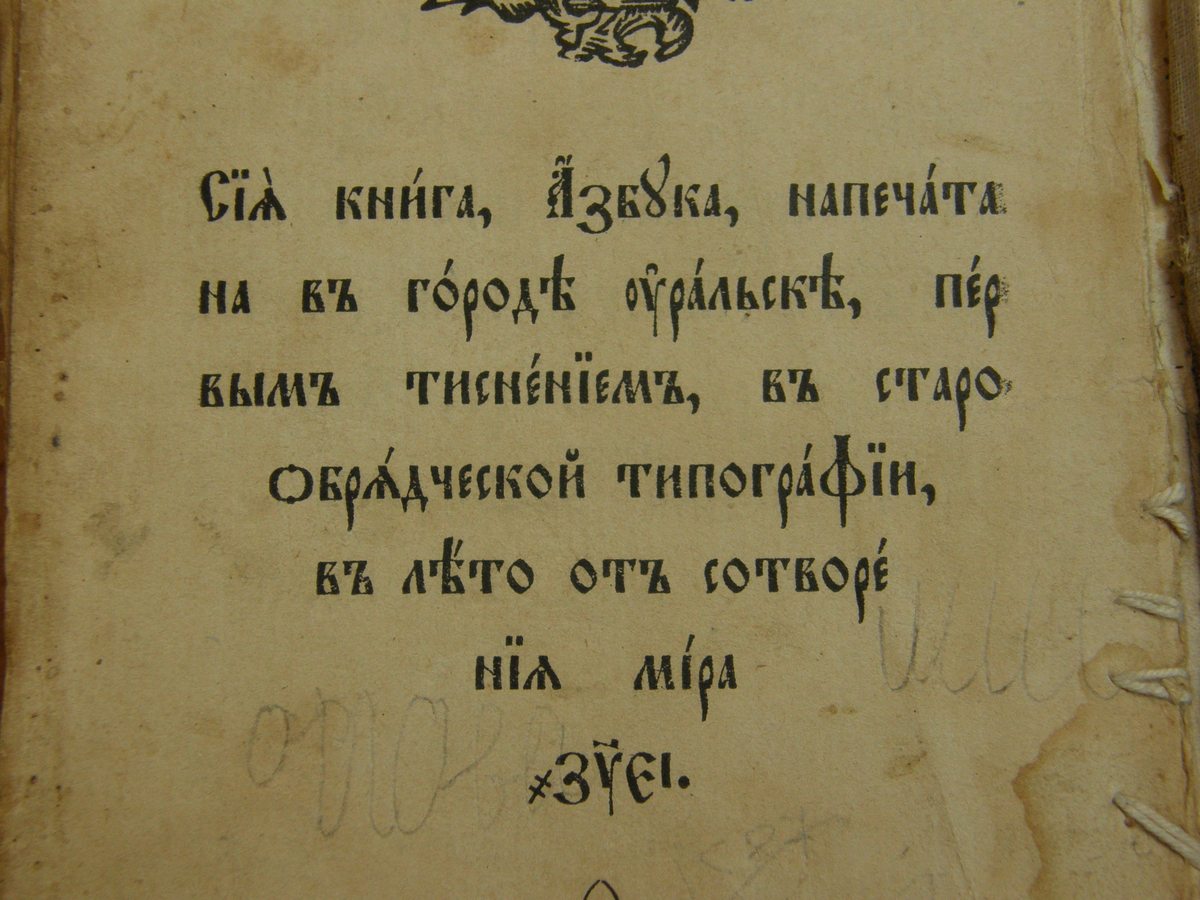 Сїѧ̀ кни́га, А҆́збꙋка, напеча́та
на въ го́родѣ ᲂу҆ра́льскѣ, пе́р
вымъ тисне́нїемъ, въ старо
ѻбрѧ́дческой типогра́фїи,
въ лѣ́то отъ сотворе́
нїѧ мі́ра
҂ЗУ҃ЕІ.